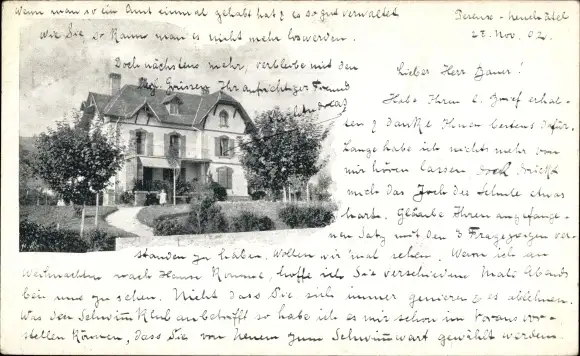 Wenn man so ein Amt einmal gehabt hat & es so gut verwaltet
wie Sie so kann man es nicht mehr loswerden.
Doch nächstens mehr, verbleibe mit den
besten Grüssen Ihr aufrichtiger Freund
Peseux-Neuchâtel
28. Nov. 02.
Lieber Herr Bauer!
Habe Ihren l. Brief erhal-
ten & danke Ihnen bestens dafür.
Lange habe ich nichts mehr von
mir hören lassen doch drückt
mich das Joch der Schule etwas
hart. Glaube Ihren angefange-
nen Satz mit den 3 Fragezeigen ver-
standen zu haben. Wollen wir mal sehen. Wenn ich an
Weihnachten nach Hause komme, hoffe ich Sie verschiedene Male Abends
bei uns zu sehen. Nicht dass Sie sich immer genieren & es ablehnen.
Was den Schwimmklub anbetrifft so habe ich es mir schon im Voraus vor-
stellen können, dass Sie von neuem zum Schwimmwart gewählt werden.